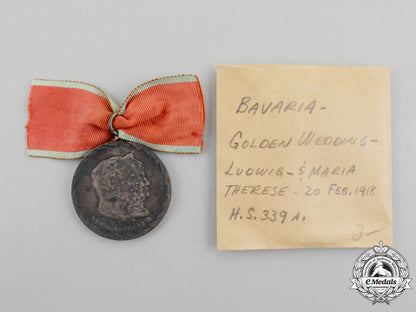 BAVARIA -
GOLDEN WEDDING -
LUDWIG - & MARIA
THERESE - 20 FEB, 1918
H.S. 339 A.
3-
eMedals